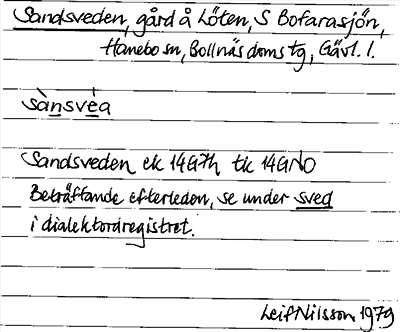 Sandsveden, gård å Löten, S Bofarasjön,
Hanebo sn, Bollnäs doms tg, Gävl. l.
sànsvéa
Sandsveden ek 14G7h tk 14GNO
Beträffande efterleden, se under sved
i dialektordregistret.
Leif Nilsson 1979